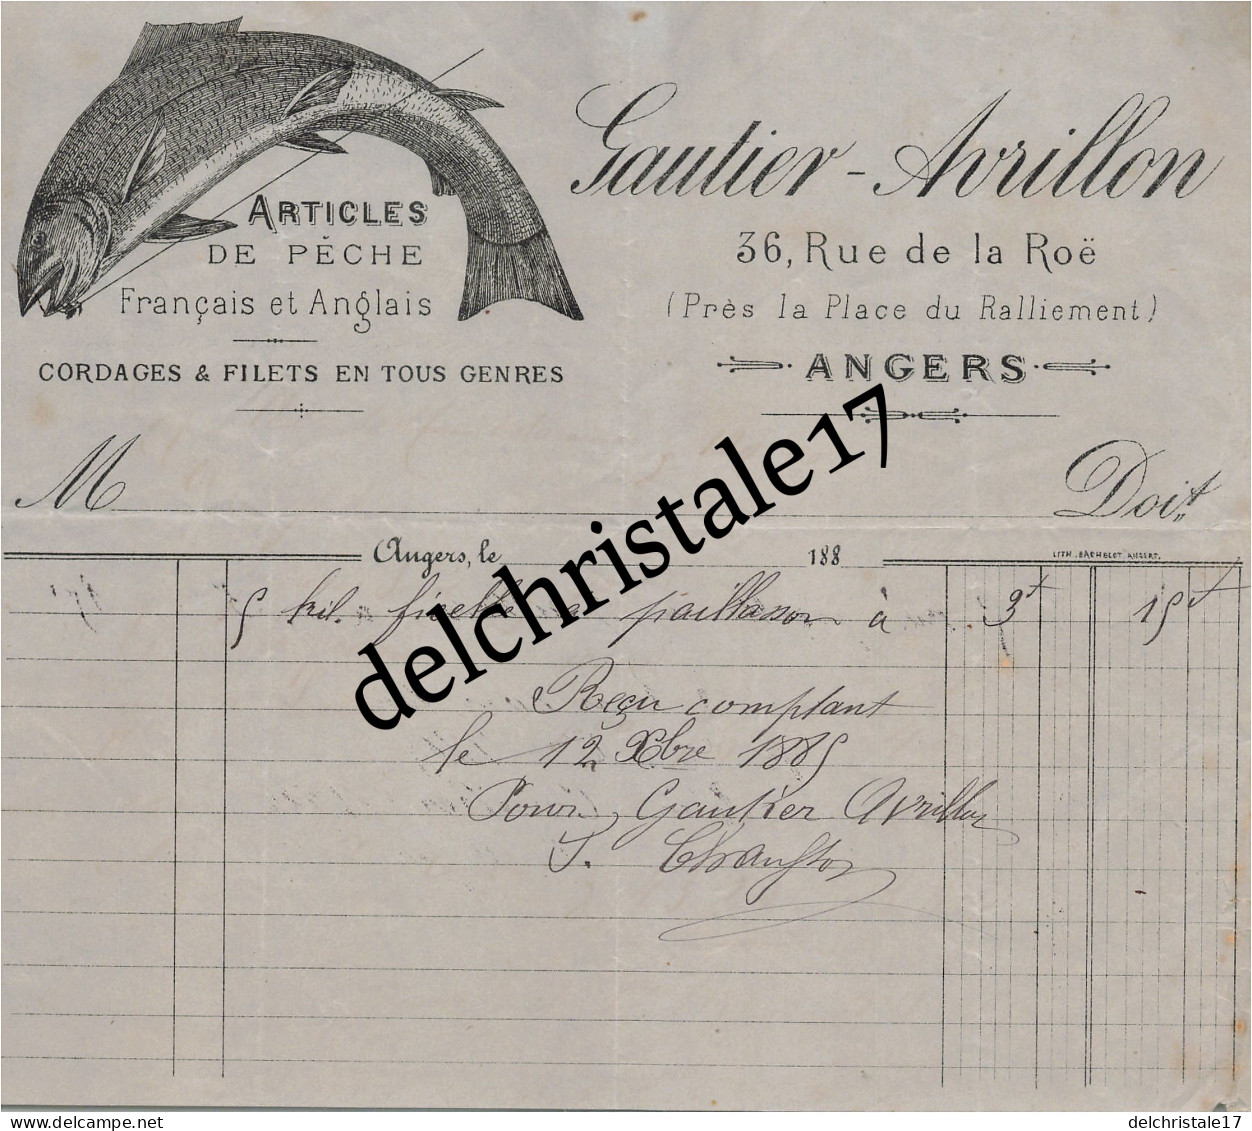 Gautier-Avrillon
ARTICLES
DE PÊCHE
Français et Anglais
36, Rue de la Roë
(Près la Place du Ralliement)
CORDAGES & FILETS EN TOUS GENRES
ANGERS
M
Doit
Angers, le 188
LITH. BACHELOT, ANGERS.
5 kil. ficelle paillasson à 3f 15f
Reçu comptant
le 12 Xbre 1885
Pour Gautier Avrillon
delchristale17
delcampe.net
delchristale17